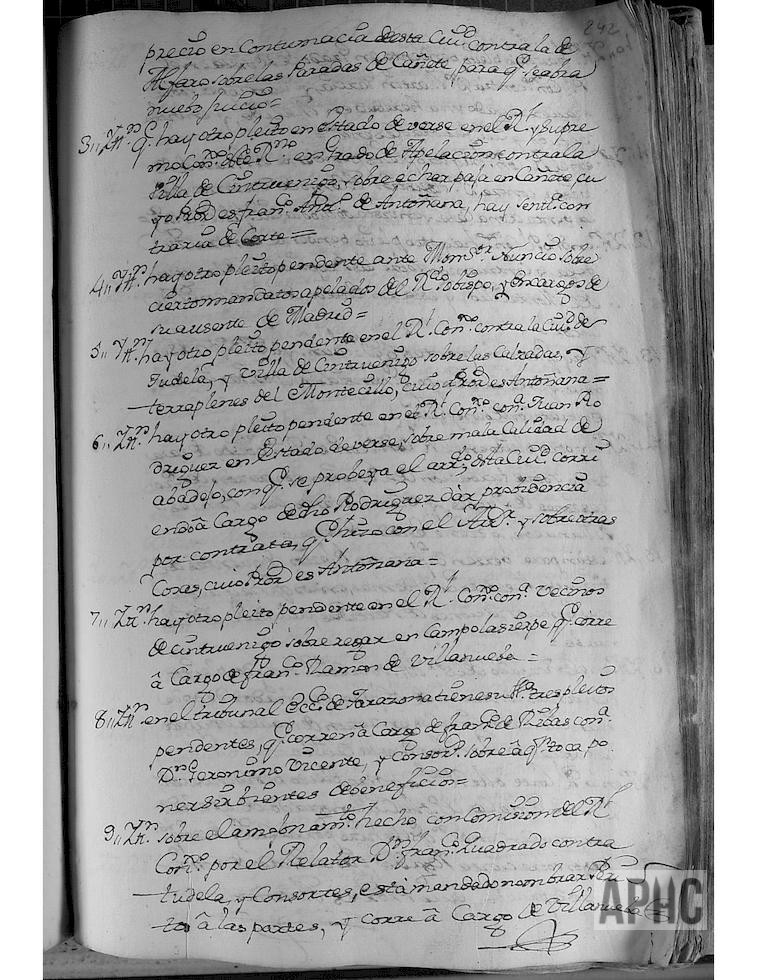 242
precio en Contumacia desta Ciud contra la de
Alfaro sobre las Paradas de Cañete, para q.e se abra
nuebo Juicio=
3,, Ytt.n q.e hay otro pleito en estado de verse en el R.l y Supre
mo Con.o deste R.no en grado de Apelacion contra la
Villa de Cintruenigo, sobre echar paja en Cañete cu
yo Pror es fran.co Ant.o de Antoñana, hay sent.a con
traria de Corte =
4,, Ytt.n hay otro pleito pendente ante Mons.or Nuncio sobre
ciertos mandatos apelados del R.do obispo, y encargos de
su ausente de Madrid=
5,, Ytt.n hay otro pleito pendente en el R.l Con.o contra la Ciu.d de
Tudela, y Villa de Cintruenigo sobre las Calzadas, y
terraplenes del Montecillo, cuio Pror es Antoñana=
6,, Ytt.n hay otro pleito pendente en el R.l Con.o con.a Juan Ro
driguez en estado de verse, sobre mala Calidad de
abadejo, con q.e se probeya el desta Ciu.d corri
endo â Cargo de dho Rodriguez dar providencia
por contrata, q.e hizo con el y sobre otras
Cosas, cuio Pror es Antoñana=
7,, Ytt.n hay otro pleito pendente en el R.l Con.o con.a Vecinos
de Cintruenigo sobre regar en Campo lasierpe q.e corre
â Cargo de fran.co Ramon de Villanueba =
8,, Ytt.n en el tribunal Ecc.o de Tarazona tiene su tres pleitos
pendentes, q.e corren â Cargo de fran.co de Ribas con.a
D.n Geronimo Vicente, y Consor.s sobre â q.n toca po
ner sirbientes de beneficios=
9,, Ytt.n sobre el amojonam.to hecho con Comision del R.l
Con.o por el Relator D.n fran.co Quadrado contra
tudela, y Consortes, està mandado nombrar Peri
tos â las partes, y corre â Cargo de Villanueba
APHC